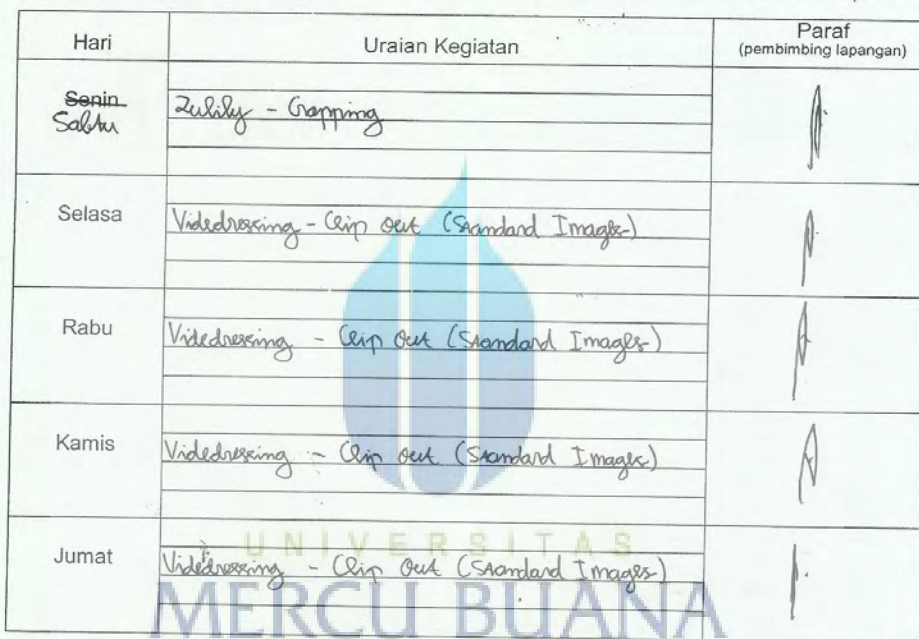 Hari Uraian Kegiatan Paraf
(pembimbing lapangan)
Senin
Sabtu Zulily - Cropping
Selasa Videdressing - Clip out (Standard Images)
Rabu Videdressing - Clip out (Standard Images)
Kamis Videdressing - Clip out (Standard Images)
UNIVERSITAS
Jumat Videdressing - Clip out (Standard Images)
MERCU BUANA